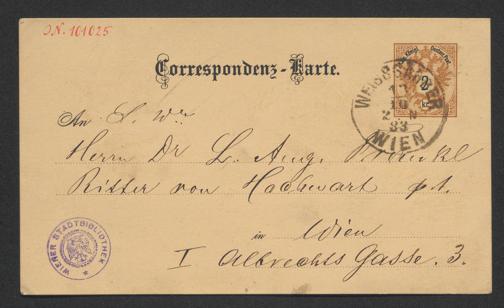 J.N. 101025
Correspondenz-Karte.
2
WEISSGÄRBER
10
83
WIEN
An S. Wr
Herrn Dr L. Aug. Frankl
Ritter von Hochwart p.t.
in Wien
I Albrechts Gasse. 3.
WIENER STADTBIBLIOTHEK